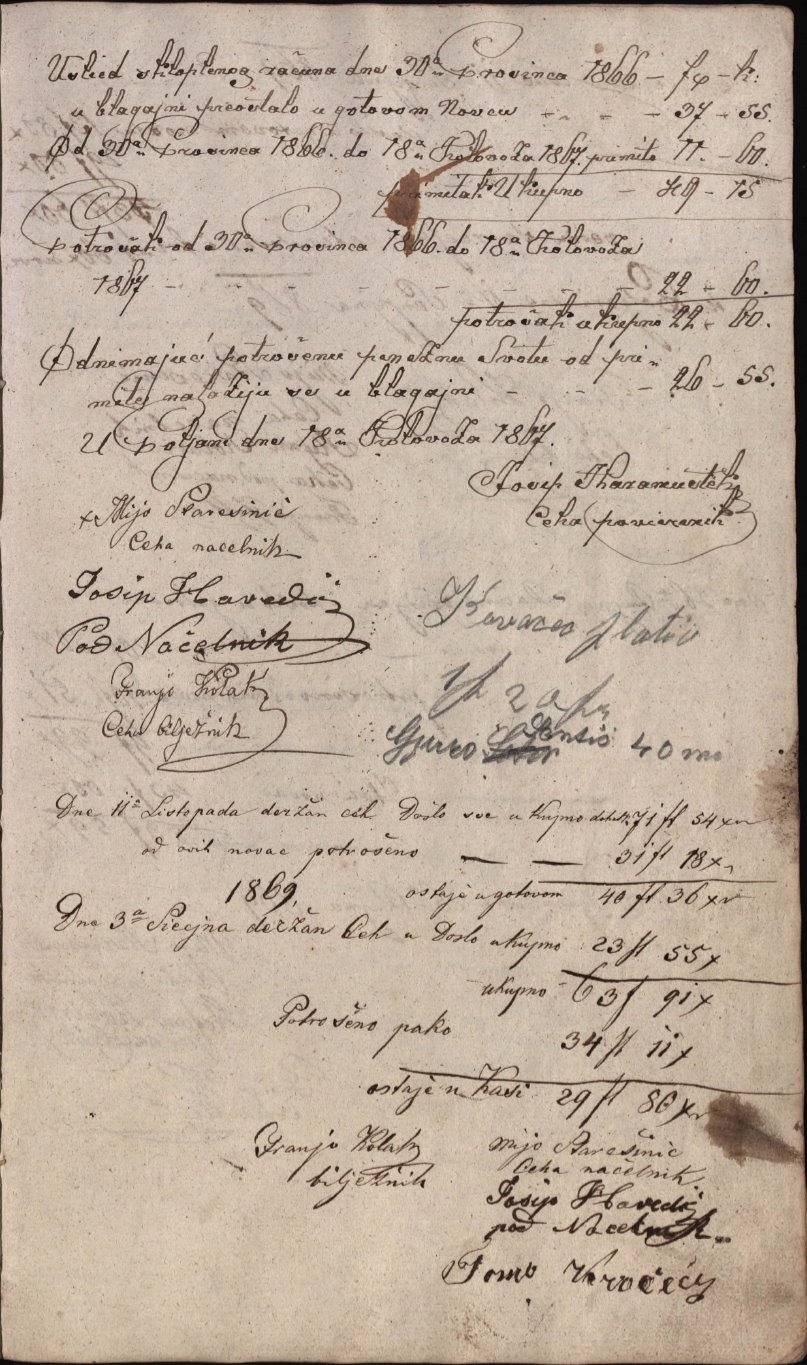 Uslied sklopljenog računa dne 30a Prosinca 1866 – fx – k:
u blagajni preostalo u gotovom Novcu – – – 37 – 55.
Od 30a Prosinca 1866. do 18a Kolovoza 1867. primito 11. – 60.
primitak Ukupno – 49 – 15
potrošak od 30a Prosinca 1866. do 18a Kolovoza
1867 – – – – – – – – 22 – 60.
potrošak ukupno 22 – 60.
Odnimajuć potrošenu penežnu Svotu od pri„
mite, nalažiju se u blagajni – – – 26 – 55.
U Poljani dne 18a Kolovoza 1867.
Josip
Ceha povierenik
+ Mijo Staresinić
Ceha nacelnik
Josip Havedić
Pod Načelnik
Franjo Kolak
Ceha bilježnik
Kovačev zlatio
20
Gjuro 40
Dne 11a Listopada deržan ceh Došlo sve u kupmo 71 ft 54 xr
od ovih novac potrošeno — — 31 ft 18 x
ostaje u gotovom 40 ft 36 xr
1869
Dne 3a Siecjna deržan Ceh u Doslo ukupno 23 ft 55 x
ukupno 63 f 91 x
Potrošeno pako 34 ft 11 x
ostaje u Kasi 29 ft 80 xr
Franjo Kolak
bilježnik
mijo Starešinić
Ceha načelnik
Josip Havedić
pod Nacelnik
Tomo